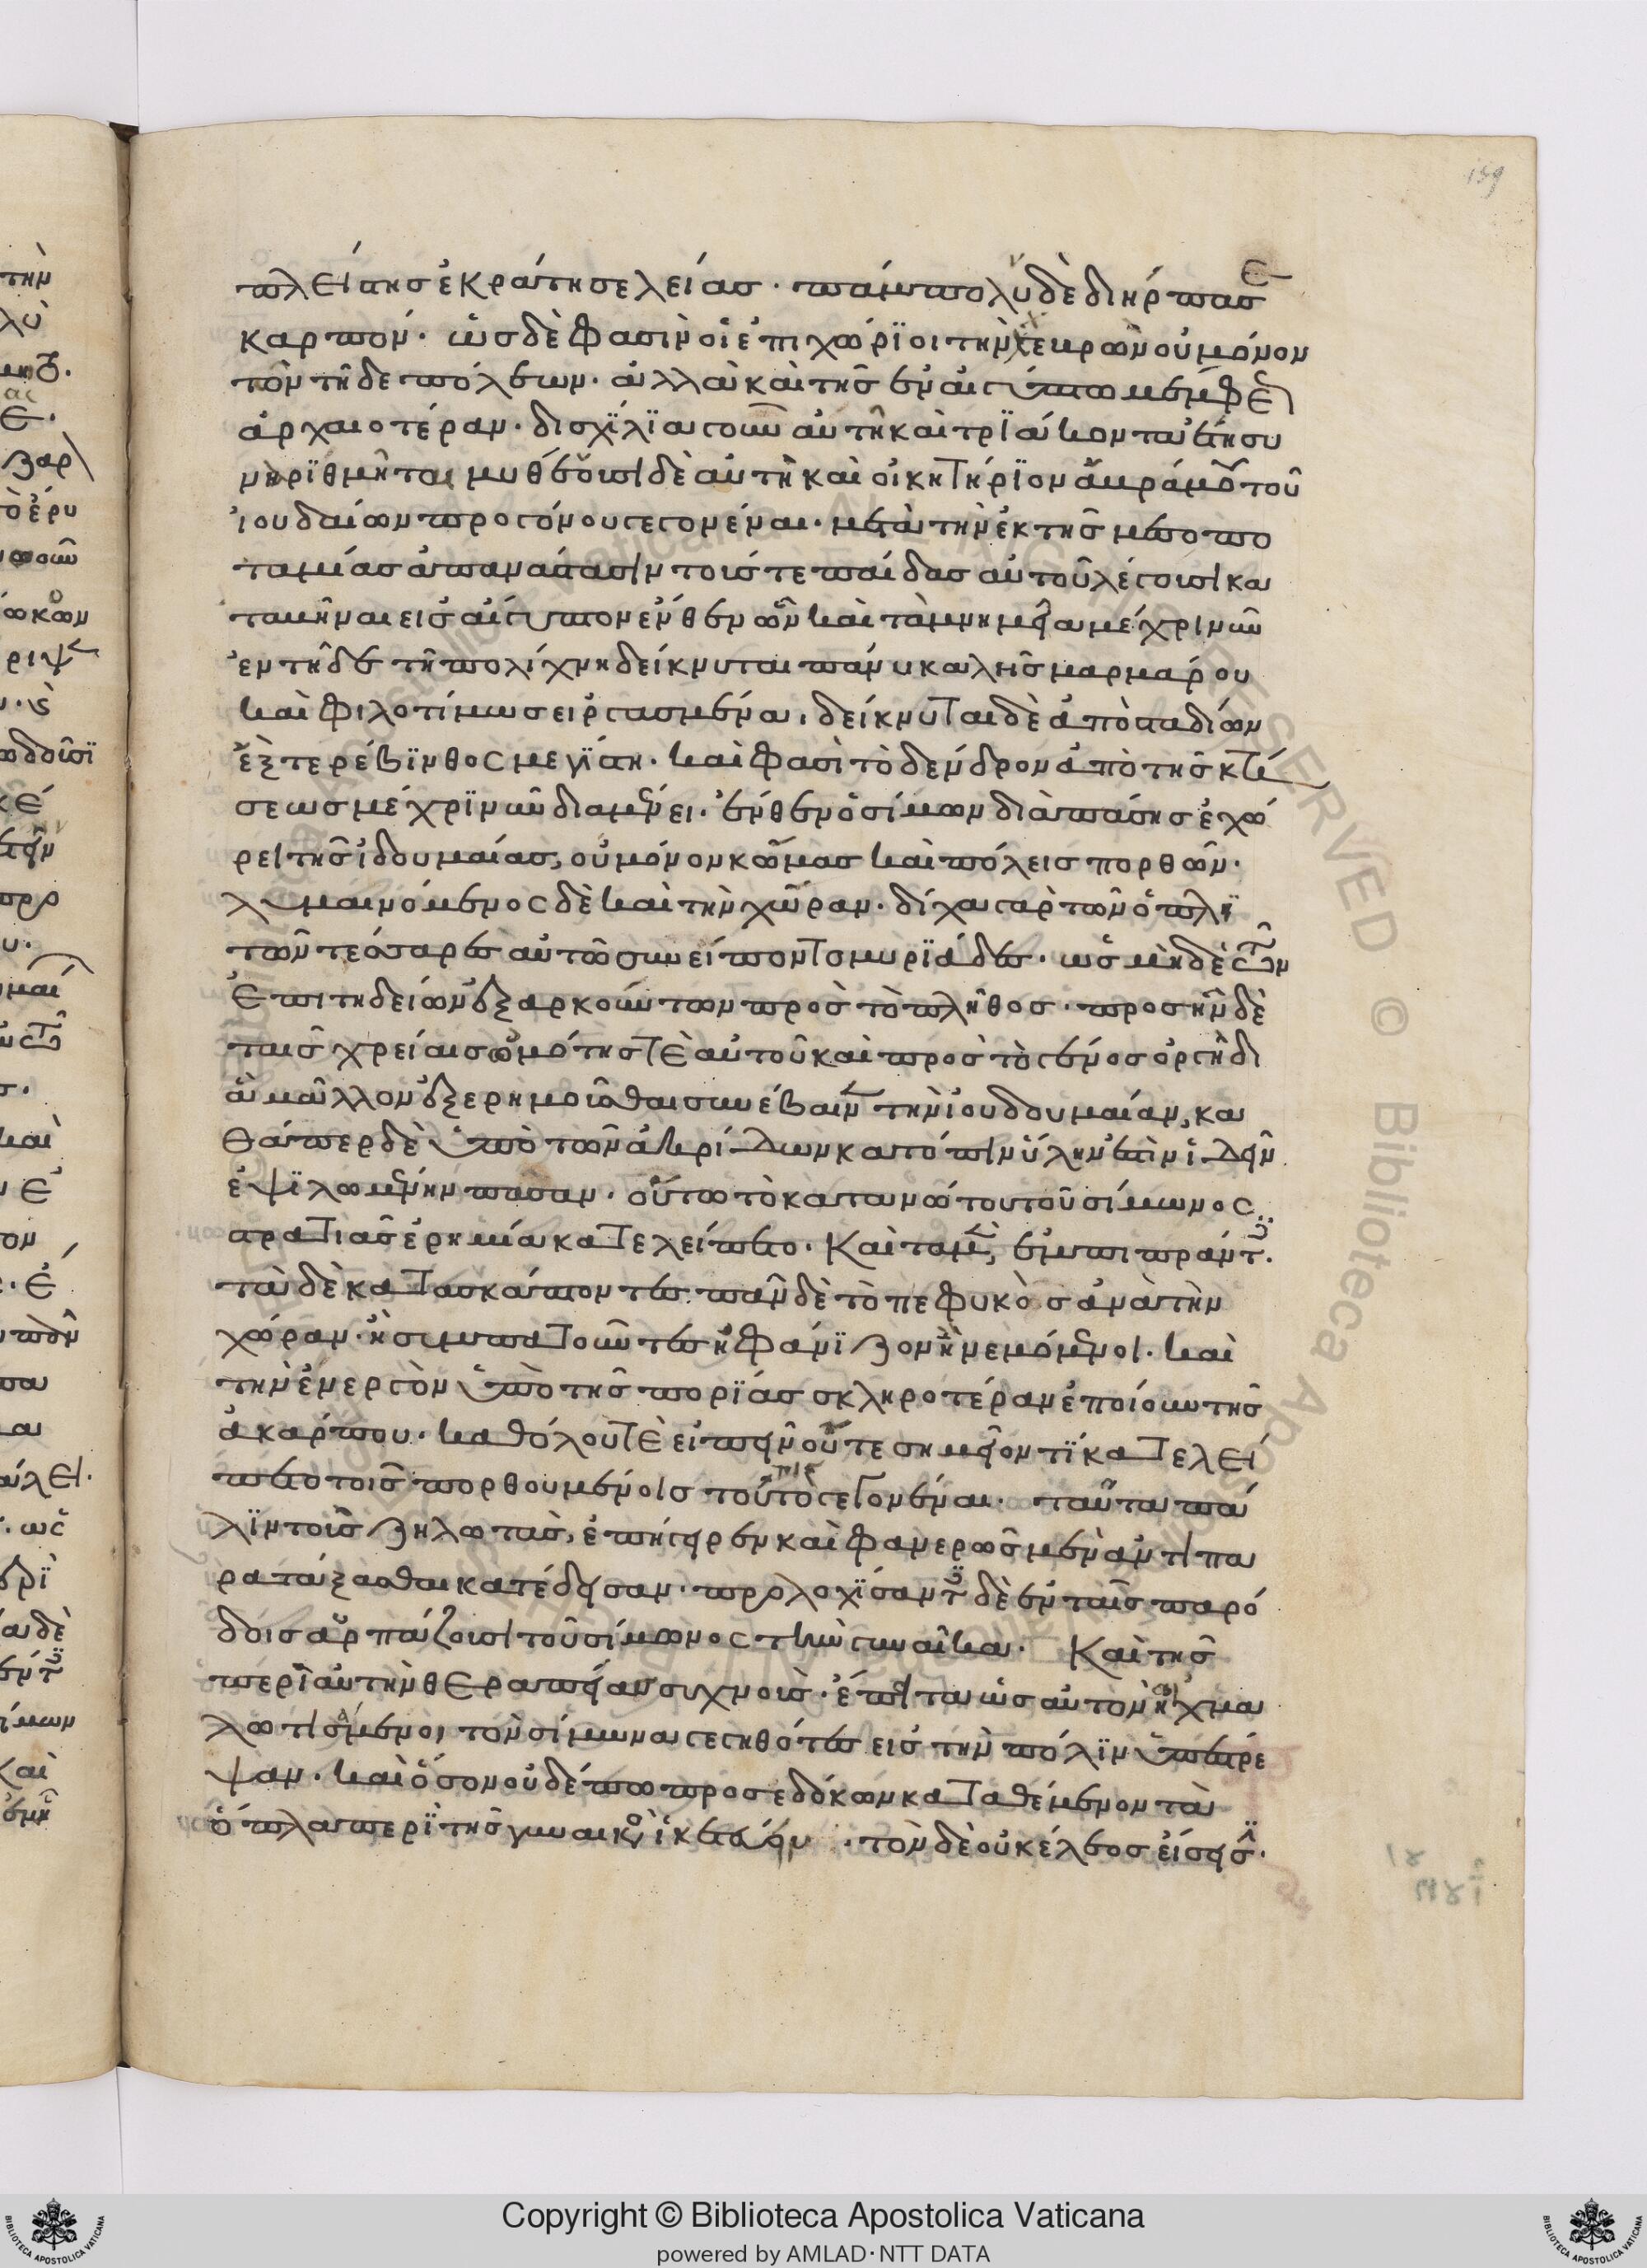 159
πλείστης ἐκράτησε λείας. πάμπολυν δὲ διήρπασε
καρπόν. ὡς δὲ φασὶν οἱ ἐπιχώριοι τὴν χευρὼν οὐ μόνον
τῶν τῆδε πόλεων. ἀλλὰ καὶ τῆς ἐν αἰγύπτω μέμφεως
ἀρχαιοτέραν. δισχίλια γοῦν αὐτῆ καὶ τριάκοντα ἔτη συ
νηρίθμηται μυθεύουσι δὲ αὐτὴν καὶ οἰκητήριον ἀβράμου τοῦ
ἰουδαίων προγόνου γεγονέναι. μετὰ τὴν ἐκ τῆς μεσοπο
ταμίας ἀπανάστασιν τούς τε παῖδας αὐτοῦ λέγουσι κα
ταβῆναι εἰς αἴγυπτον ἔνθεν ὧν καὶ τὰ μνημεῖα μέχρι νῦν
ἐν τῆδε τῆ πολίχνη δείκνυται πάνυ καλῆς μαρμάρου
καὶ φιλοτίμως εἰργασμένα. δείκνυται δὲ ἀπὸ σταδίων
ἓξ τερέβινθος μεγίστη. καὶ φασὶ τὸ δένδρον ἀπὸ τῆς κτί
σεως μέχρι νῦν διαμένει. ἔνθεν ὁ σίμων διὰ πάσης ἐχώ
ρει τῆς ἰδουμαίας, οὐ μόνον κώμας καὶ πόλεις πορθῶν.
λυμαινόμενος δὲ καὶ τὴν χώραν. δίχα γὰρ τῶν ὁπλι
τῶν τέσσαρες αὐτῶ συνείποντο μυριάδες. ὡς μηδὲ τῶν
ἐπιτηδείων ἐξαρκούντων πρὸς τὸ πλῆθος. προσῆν δὲ
ταῖς χρείαις ὠμότης τὲ αὐτοῦ καὶ πρὸς τὸ γένος ὀργὴ δι
ἃ μᾶλλον ἐξερημοῦσθαι συνέβαινε τὴν ἰουδουμαίαν, κα
θάπερ δὲ ὑπὸ τῶν ἀκρίδων κατόπιν ὕλην ἔστιν ἰδεῖν
ἐψιλωμένην πᾶσαν. οὕτω τὸ κατὰ νώτου τοῦ σίμωνος
στρατιᾶς ἐρημία κατελείπετο. Καὶ τὰ μὲν, ἐμπιπράντες.
τὰ δὲ κατασκάπτοντες. πᾶν δὲ τὸ πεφυκὸς ἀνὰ τὴν
χώραν. ἢ συμπατοῦντες ἠφάνιζον ἢ νεμόμενοι. καὶ
τὴν ἐνεργὸν ὑπὸ τῆς πορίας σκληροτέραν ἐποίουν τῆς
ἀκάρπου. καθόλου τὲ εἰπεῖν οὔτε σημεῖόν τι κατελεί
πετο τοῖς πορθουμένοις τοῦτο γεγονέναι. ταῦτα πά
λιν τοὺς ζηλωτὰς, ἐπήγειρεν καὶ φανερῶς μὲν ἀντιπα
ρατάξασθαι κατέδεισαν. προλοχίσαντες δὲ ἐν ταῖς παρό
δοις ἁρπάζουσι τοῦ σίμωνος τὴν γυναῖκα. Καὶ τῆς
περὶ αὐτὴν θεραπείας συχνούς. ἔπειτα ὡς αὐτὸν αἰχμα
λωτισάμενοι τὸν σίμωνα γεγηθότες εἰς τὴν πόλιν ὑπέστρε
ψαν. καὶ ὅσον οὐδέπω προσεδόκων καταθέμενον τὰ
ὅπλα περὶ τῆς γυναικὸς ἱκετεύειν. τὸν δὲ οὐκ ἔλεος εἴσεισ.